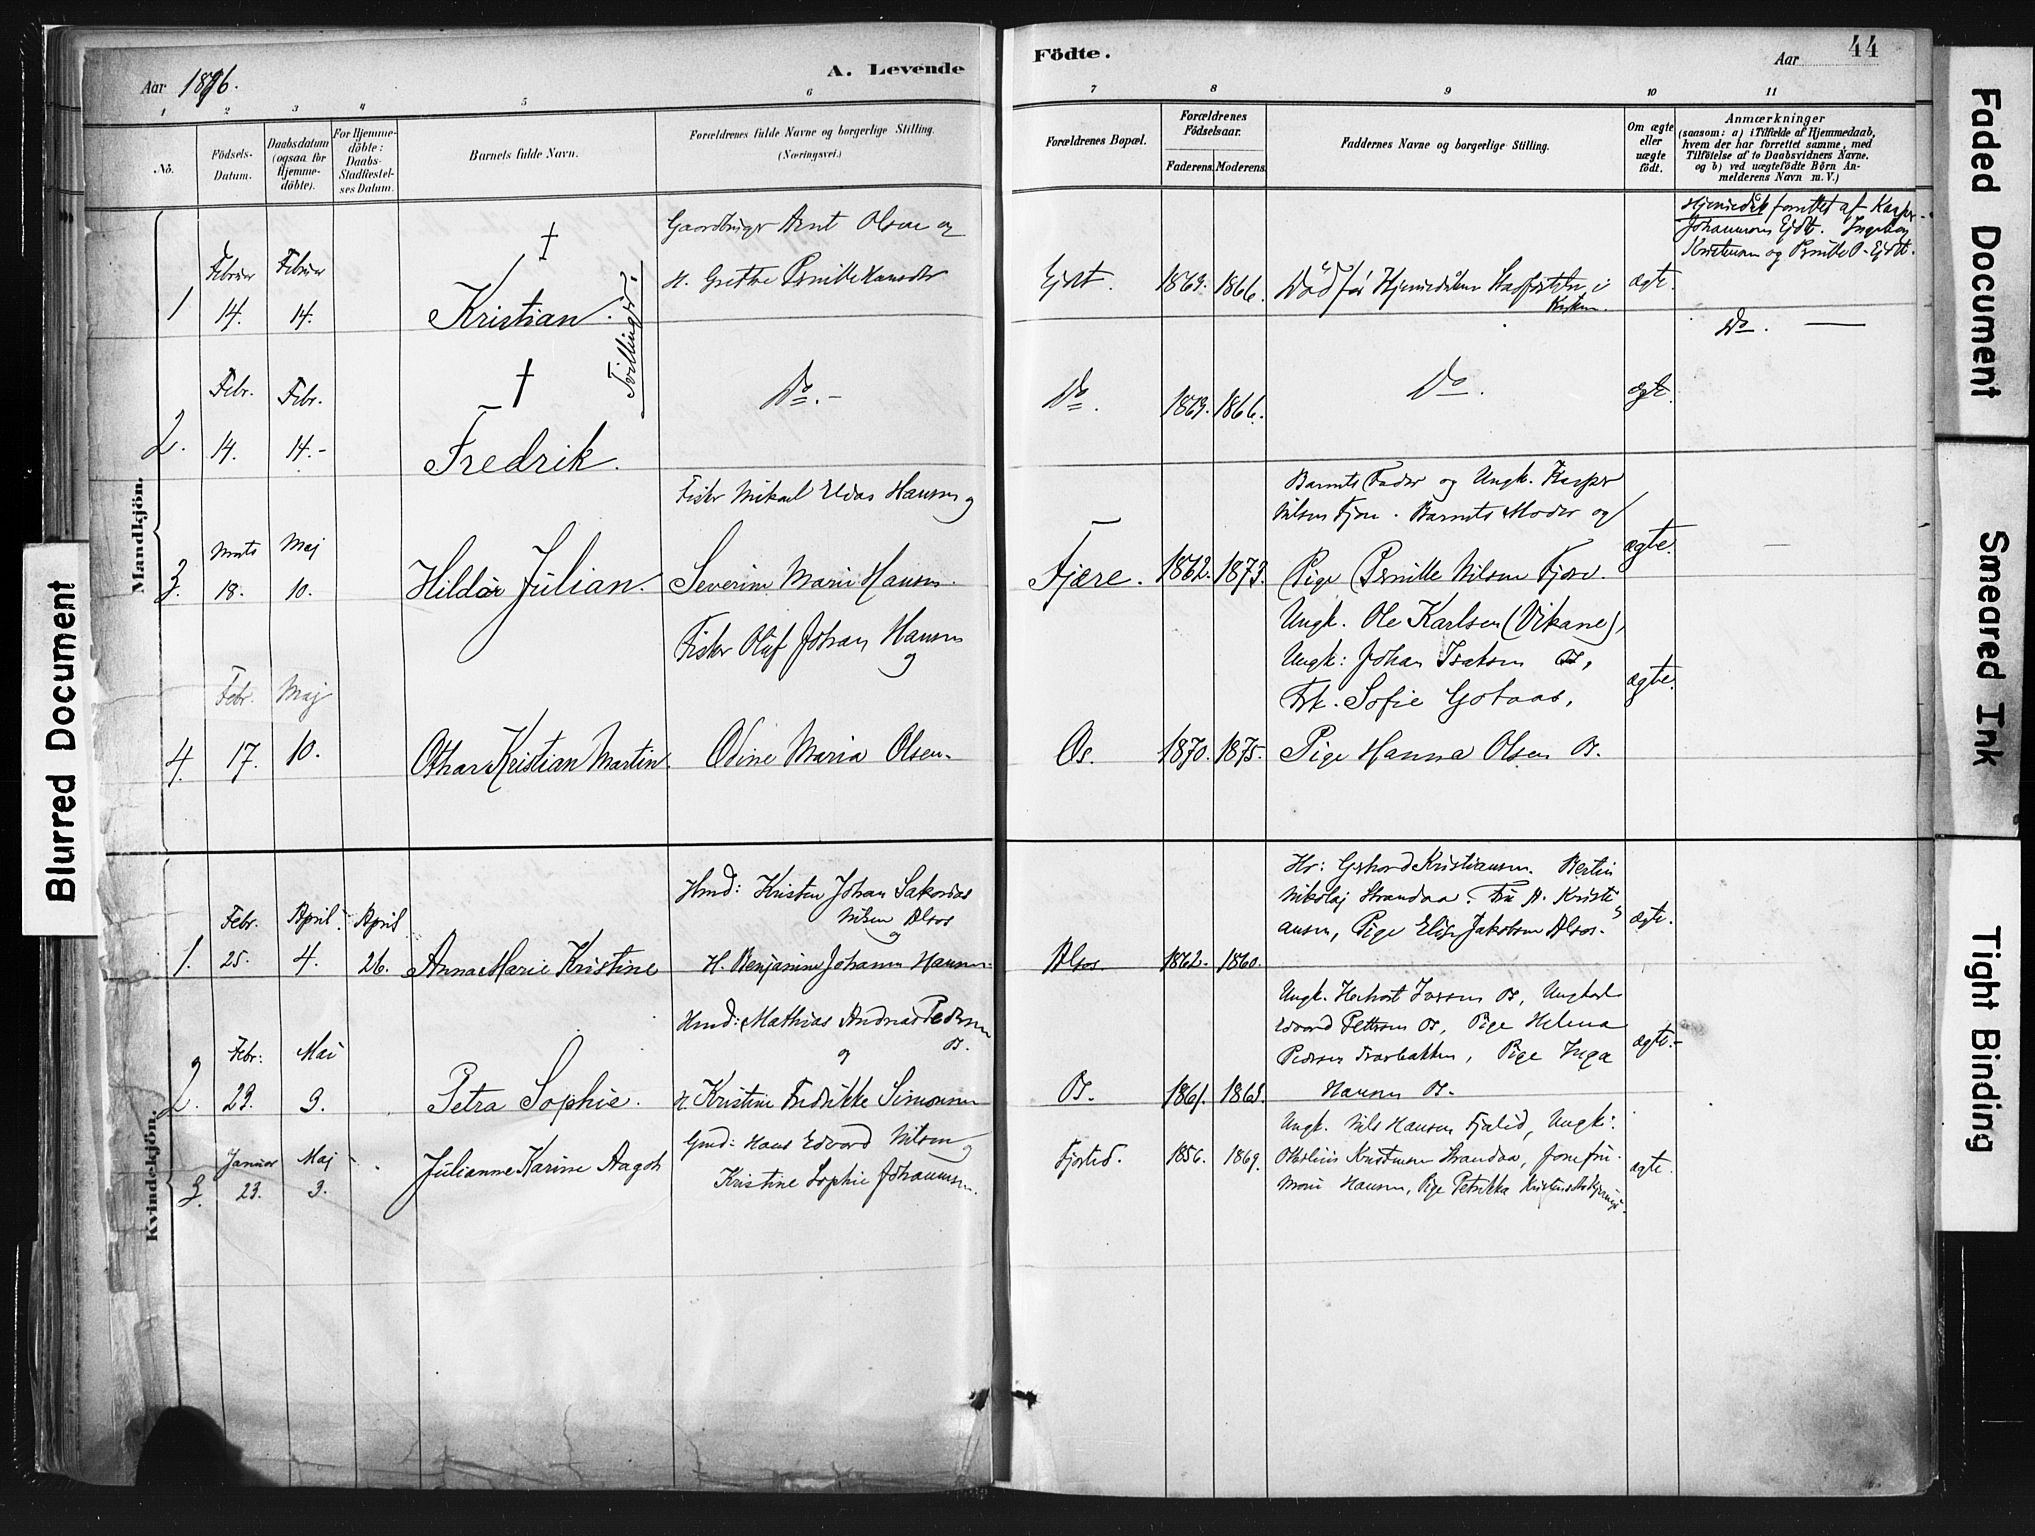 Aar 1896.
A. Levende
1 2 3 4 5 6
No.
Födsels-Datum.
Daabsdatum (ogsaa for Hjemmedöbte).
For Hjemmedöbte: Daabs-Stadfæstelses Datum.
Barnets fulde Navn.
Forældrenes fulde Navne og borgerlige Stilling. (Næringsvei.)
Mandkjön.
1 Februar 14. Februar 14. † Kristian. Tvillinger.
Gaardbruger Arnt Olsen og
H. Grethe Pernille Hansdtr
2. Febr. 14. Febr. 14.- † Fredrik. Do.-
3. Marts 18. Maj 10. Hildor Julian.
Fisker Mikael Elias Hansen og
Severine Marie Hansen.
4. Febr. 17. Maj 10. Othar Kristian Martin.
Fisker Oluf Johan Hansen
og
Odine Maria Olsen.
Kvindekjön.
1. Febr. 25. April 4. April 26. Anna Marie Kristine
Hmd: Kristen Johan
Nilsen Alsos
og
H. Benjamine Johanna Hansen.
2. Febr: 29. Mai 3. Petra Sophie.
Hmd: Mathias Andreas Pedersen
Os.
og
H. Kristine Fredrikke Simonsen
3. Januar 23. Maj 3. Julianne Karine Aagot
Gmd: Hans Edvard Nilsen og
Kristine Sophie Johannesen.
Födte.
Aar 44
7 8 9 10 11
Forældrenes Bopæl.
Forældrenes Födselsaar.
Faderens. Moderens.
Faddernes Navne og borgerlige Stilling.
Om ægte eller uægte födt.
Anmærkninger
(saasom: a) i Tilfælde af Hjemmedaab,
hvem der har forrettet samme, med
Tilföielse af to Daabsvidners Navne.
og b) ved uægtefödte Börn Anmelderens Navn m. V.)
1869. 1866. Död før Hjemmedaabens Stadfæstelse i
Kirken. ægte.
Hjemmedåb forrettet af Kasper
Do. —
Do. 1869. 1866. Do. ægte.
Barnets Fader og Ungk. Kasper
Nilsen Fjære. Barnets Moder og
Fjære. 1862. 1873. Pige Pernille Nilsen Fjære. ægte. —
Ungk. Ole Karlsen (Vikane),
Ungk: Johan Isaksen Os,
Frk. Sofie Gotaas,
Os. 1870. 1875. Pige Hanna Olsen Os. ægte.
Hr: Gerhard Kristiansen. Bertin
Nikolaj Strandaa. Fru A. Kristi-
ansen, Pige Elise Jakobsen Alsos.
Alsos 1862. 1860. ægte.
Ungk. Herbart Os, Ungkarl
Edvard Pettersen Os, Pige Helena
Pedersen, Pige Inga
Hansen Os.
Os. 1861. 1865. ægte.-
Ungk. Nils Hansen, Ungk:
Strandaa, Jomfru
Hansen, Pige Petrikka
1856. 1869. ægte.
Blurred Document
Faded Document
Smeared Ink
Tight Binding